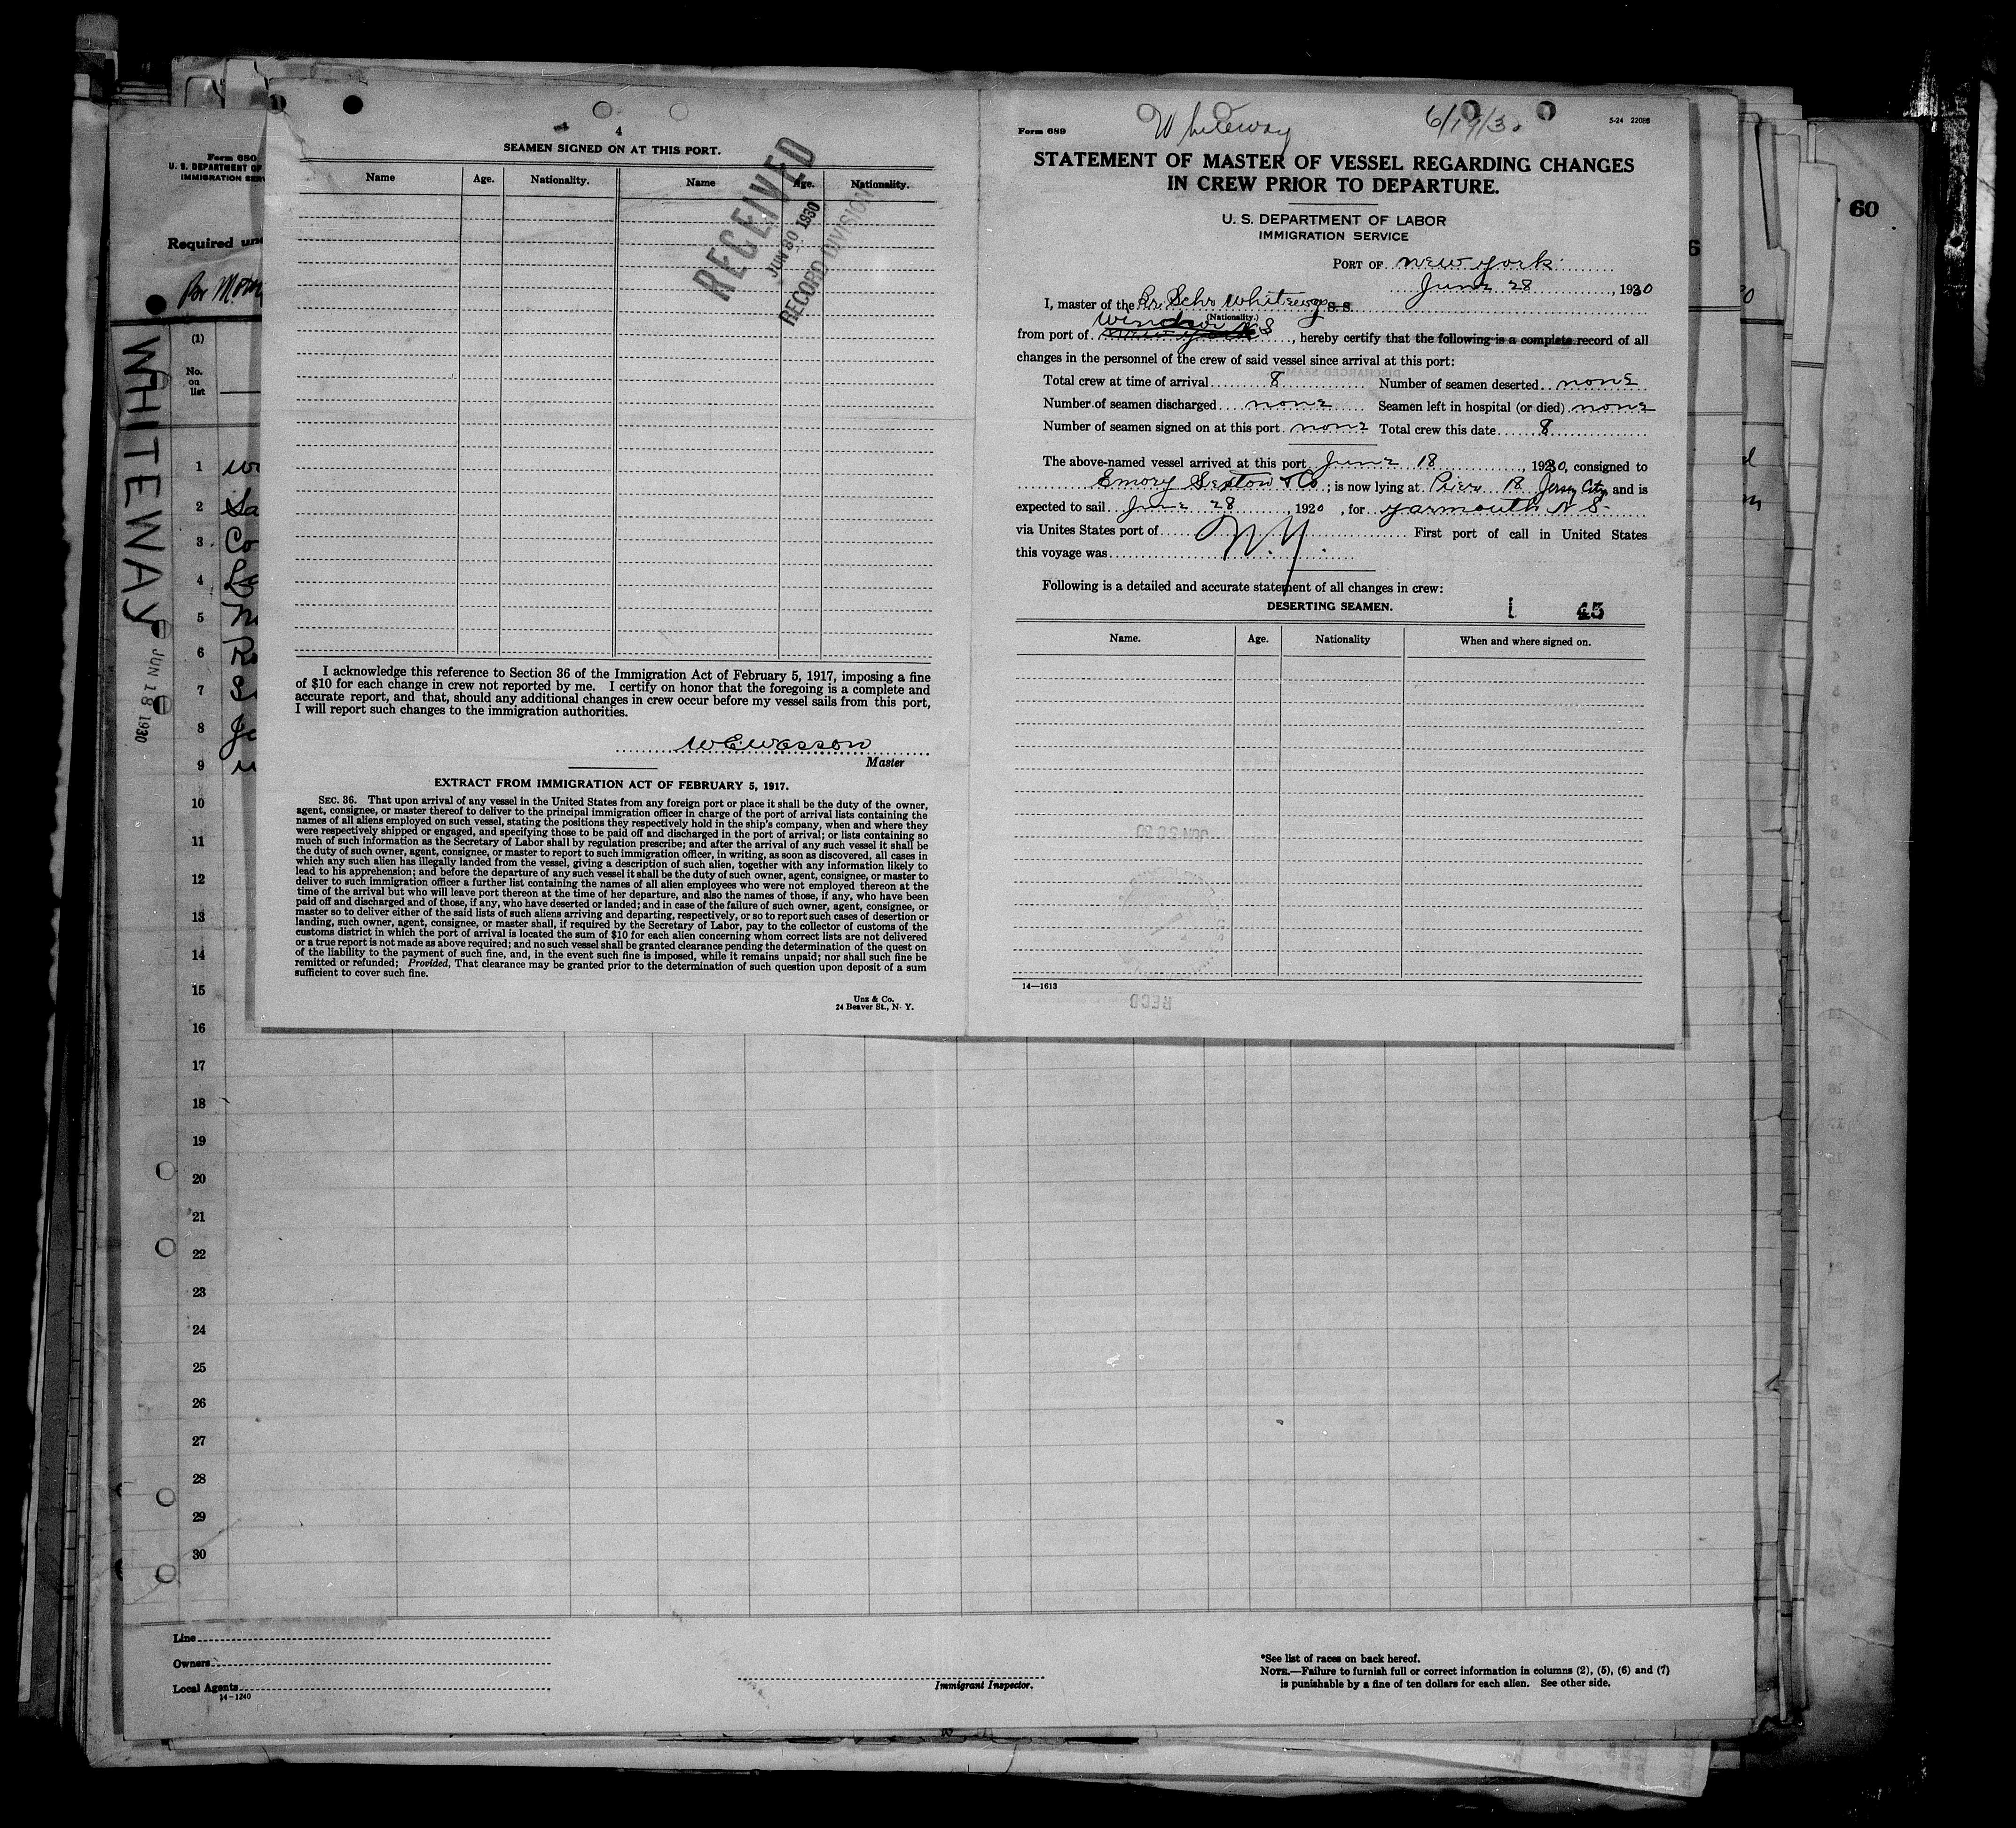 Form 680
U. S. DEPARTMENT OF
IMMIGRATION SERV
Required und
(1)
No.
on
list
WHITEWAY
JUN 18 1930
1
2 Sa
3 Co
4
5
6
7
8
9
10
11
12
13
14
15
16
17
18
19
20
21
22
23
24
25
26
27
28
29
30
Line
Owners
Local Agents
14-1240
Immigrant Inspector.
*See list of races on back hereof.
NOTE.—Failure to furnish full or correct information in columns (2), (5), (6) and (7)
is punishable by a fine of ten dollars for each alien. See other side.
4
SEAMEN SIGNED ON AT THIS PORT.
Name Age. Nationality. Name Age. Nationality.
RECEIVED
JUN 30 1930
RECORD DIVISION
I acknowledge this reference to Section 36 of the Immigration Act of February 5, 1917, imposing a fine
of $10 for each change in crew not reported by me. I certify on honor that the foregoing is a complete and
accurate report, and that, should any additional changes in crew occur before my vessel sails from this port,
I will report such changes to the immigration authorities.
W E Wasson
Master
EXTRACT FROM IMMIGRATION ACT OF FEBRUARY 5, 1917.
SEC. 36. That upon arrival of any vessel in the United States from any foreign port or place it shall be the duty of the owner,
agent, consignee, or master thereof to deliver to the principal immigration officer in charge of the port of arrival lists containing the
names of all aliens employed on such vessel, stating the positions they respectively hold in the ship's company, when and where they
were respectively shipped or engaged, and specifying those to be paid off and discharged in the port of arrival; or lists containing so
much of such information as the Secretary of Labor shall by regulation prescribe; and after the arrival of any such vessel it shall be
the duty of such owner, agent, consignee, or master to report to such immigration officer, in writing, as soon as discovered, all cases in
which any such alien has illegally landed from the vessel, giving a description of such alien, together with any information likely to
lead to his apprehension; and before the departure of any such vessel it shall be the duty of such owner, agent, consignee, or master to
deliver to such immigration officer a further list containing the names of all alien employees who were not employed thereon at the
time of the arrival but who will leave port thereon at the time of her departure, and also the names of those, if any, who have been
paid off and discharged and of those, if any, who have deserted or landed; and in case of the failure of such owner, agent, consignee, or
master so to deliver either of the said lists of such aliens arriving and departing, respectively, or so to report such cases of desertion or
landing, such owner, agent, consignee, or master shall, if required by the Secretary of Labor, pay to the collector of customs of the
customs district in which the port of arrival is located the sum of $10 for each alien concerning whom correct lists are not delivered
or a true report is not made as above required; and no such vessel shall be granted clearance pending the determination of the quest on
of the liability to the payment of such fine, and, in the event such fine is imposed, while it remains unpaid; nor shall such fine be
remitted or refunded; Provided, That clearance may be granted prior to the determination of such question upon deposit of a sum
sufficient to cover such fine.
Unz & Co.
24 Beaver St., N. Y.
Form 689 Whiteway 6/19/30 5-24 22086
STATEMENT OF MASTER OF VESSEL REGARDING CHANGES
IN CREW PRIOR TO DEPARTURE.
U. S. DEPARTMENT OF LABOR
IMMIGRATION SERVICE
PORT OF New York
June 28, 1930
I, master of the Br. Schr Whiteway S. S.
(Nationality.)
from port of Windsor N S, hereby certify that the following is a complete record of all
changes in the personnel of the crew of said vessel since arrival at this port:
Total crew at time of arrival 8 Number of seamen deserted none
Number of seamen discharged none Seamen left in hospital (or died) none
Number of seamen signed on at this port none Total crew this date 8
The above-named vessel arrived at this port June 18, 1930, consigned to
Emory Sexton & Co; is now lying at Pier B Jersey City and is
expected to sail June 28, 1920, for Yarmouth N S.
via Unites States port of N.Y. First port of call in United States
this voyage was
Following is a detailed and accurate statement of all changes in crew:
DESERTING SEAMEN. 1 45
Name. Age. Nationality When and where signed on.
14—1613
RECD
60